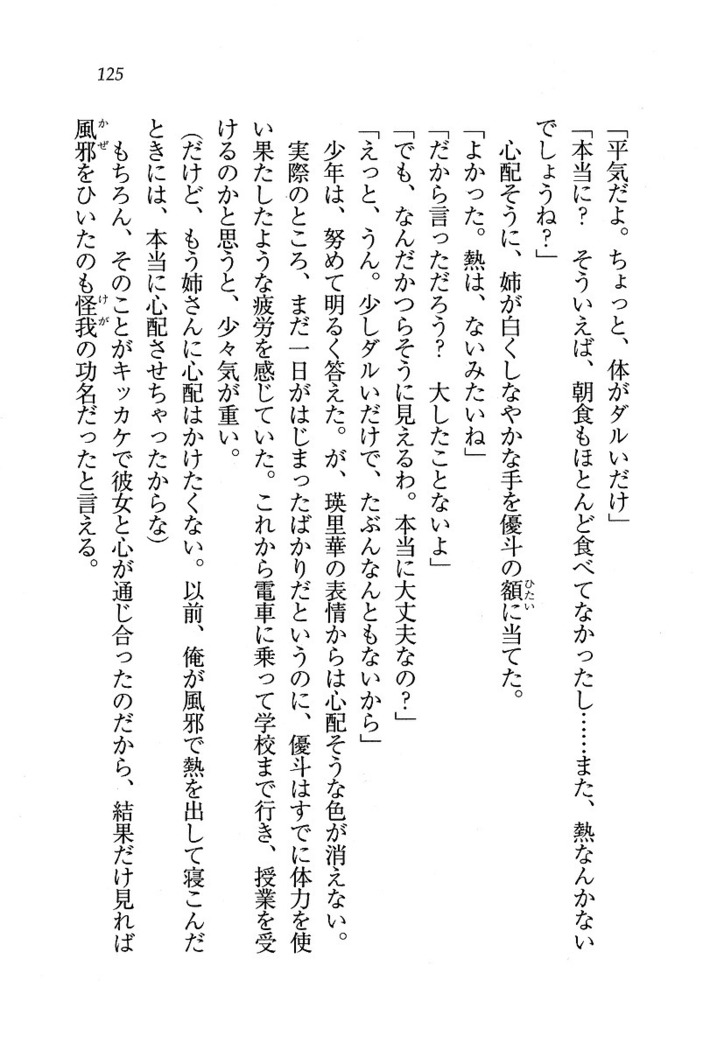 125
「平気だよ。ちょっと、体がダルいだけ」
「本当に？　そういえば、朝食もほとんど食べてなかったし……また、熱なんかない
でしょうね？」
　心配そうに、姉が白くしなやかな手を優斗の額に当てた。
「よかった。熱は、ないみたいね」
「だから言っただろう？　大したことないよ」
「でも、なんだかつらそうに見えるわ。本当に大丈夫なの？」
「えっと、うん。少しダルいだけで、たぶんなんともないから」
　少年は、努めて明るく答えた。が、瑛里華の表情からは心配そうな色が消えない。
　実際のところ、まだ一日がはじまったばかりだというのに、優斗はすでに体力を使
い果たしたような疲労を感じていた。これから電車に乗って学校まで行き、授業を受
けるのかと思うと、少々気が重い。
（だけど、もう姉さんに心配はかけたくない。以前、俺が風邪で熱を出して寝こんだ
ときには、本当に心配させちゃったからな）
　もちろん、そのことがキッカケで彼女と心が通じ合ったのだから、結果だけ見れば
風邪をひいたのも怪我の功名だったと言える。